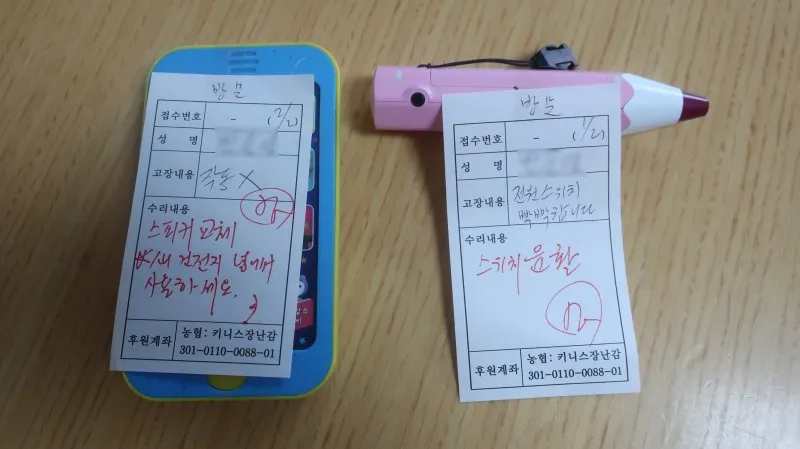 방문
접수번호 - (2/2)
성 명
고장내용 작동 X
수리내용
스피커 교체
새 건전지 넣어서
사용하세요.
후원계좌 농협: 키니스장난감
301-0110-0088-01
방문
접수번호 - (1/2)
성 명
고장내용 전원스위치
빡빡합니다
수리내용
스위치 윤활
후원계좌 농협: 키니스장난감
301-0110-0088-01